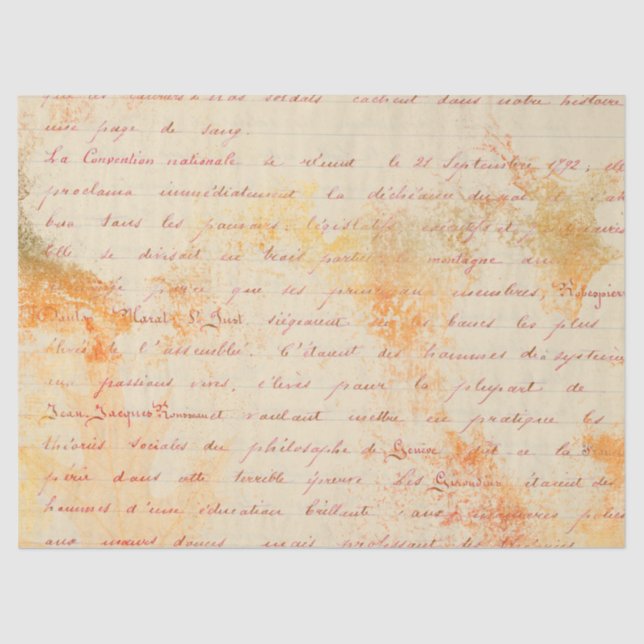 que les lauriers de nos soldats cachent dans notre histoire
une page de sang.
La Convention nationale se réunit le 21 Septembre 1792; elle
proclama immédiatement la déchéance du roi et
tous les pouvoirs: législatifs, exécutifs et
Elle se divisait en trois parties la montagne
parce que ses principaux membres, Robespier
Danton Marat St Just siégeaient sur les bancs les plus
élevés de l'assemblée. C'étaient des hommes
aux passions vives, élevés pour la plupart de
Jean-Jacques Rousseau et voulant mettre en pratique les
théories sociales du philosophe de Genève ce la
périr dans cette terrible épreuve. Les Girondins étaient des
hommes d'une éducation brillante
aux mœurs douces mais professant des théories